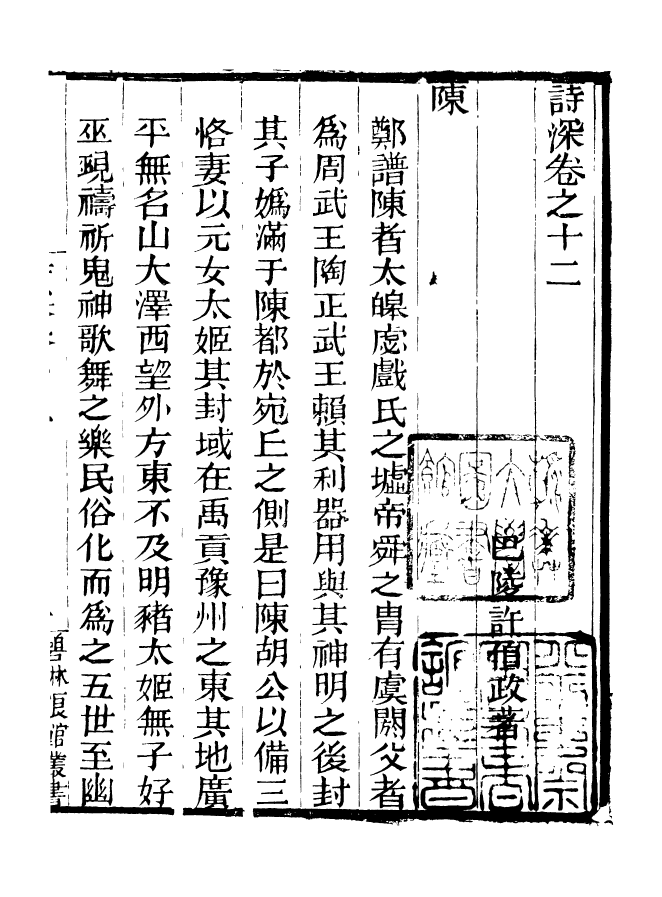 詩深卷之十二
巴陵許伯政著
陳
鄭譜陳者太皥虙戲氏之墟帝舜之胄有虞閼父者
爲周武王陶正武王賴其利器用與其神明之後封
其子嬀滿于陳都於宛丘之側是曰陳胡公以備三
恪妻以元女太姬其封域在禹貢豫州之東其地廣
平無名山大澤西望外方東不及明豬太姬無子好
巫覡禱祈鬼神歌舞之樂民俗化而爲之五世至幽
叢書